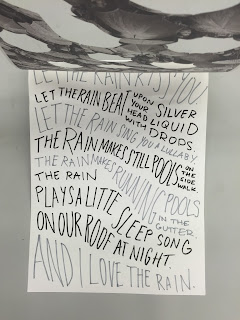 LET THE RAIN KISS YOU.
LET THE RAIN BEAT UPON YOUR HEAD WITH SILVER LIQUID DROPS.
LET THE RAIN SING YOU A LULLABY.
THE RAIN MAKES STILL POOLS ON THE SIDE WALK.
THE RAIN MAKES RUNNING POOLS IN THE GUTTER.
THE RAIN
PLAYS A LITTLE SLEEP SONG
ON OUR ROOF AT NIGHT.
AND I LOVE THE RAIN.